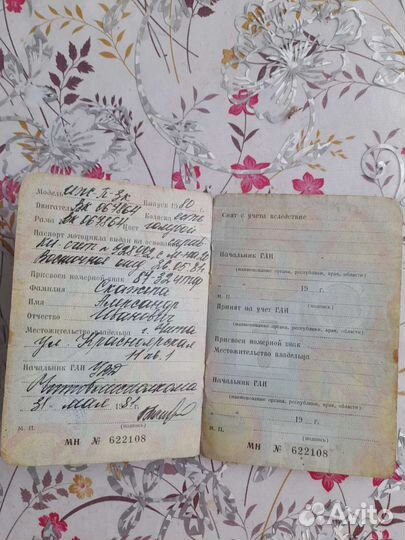 Модель ИЖ П-3К Выпуск 1980 г.
Двигатель ЗК 661164 Коляска есть
Рама ЗК 661164 Цвет голубой
Паспорт мотоцикла выдан на основании
26.05.81
Присвоен номерной знак 8732
Фамилия
Имя Александр
Отчество Иванович
Местожительство владельца г. Чита
ул. Красноярская
11 кв. 1
Начальник ГАИ УВД
Читоблисполкома
31 мая 1981 г.
М. П. (подпись)
МН № 622108
Снят с учета вследствие
Начальник ГАИ
(наименование органа, республики, края, области)
19 г.
М. П. (подпись)
Принят на учет ГАИ
(наименование органа, республики, края, области)
Присвоен номерной знак
Местожительство владельца
Начальник ГАИ
(наименование органа, республики, края, области)
19 г.
М. П. (подпись)
МН № 622108
Avito